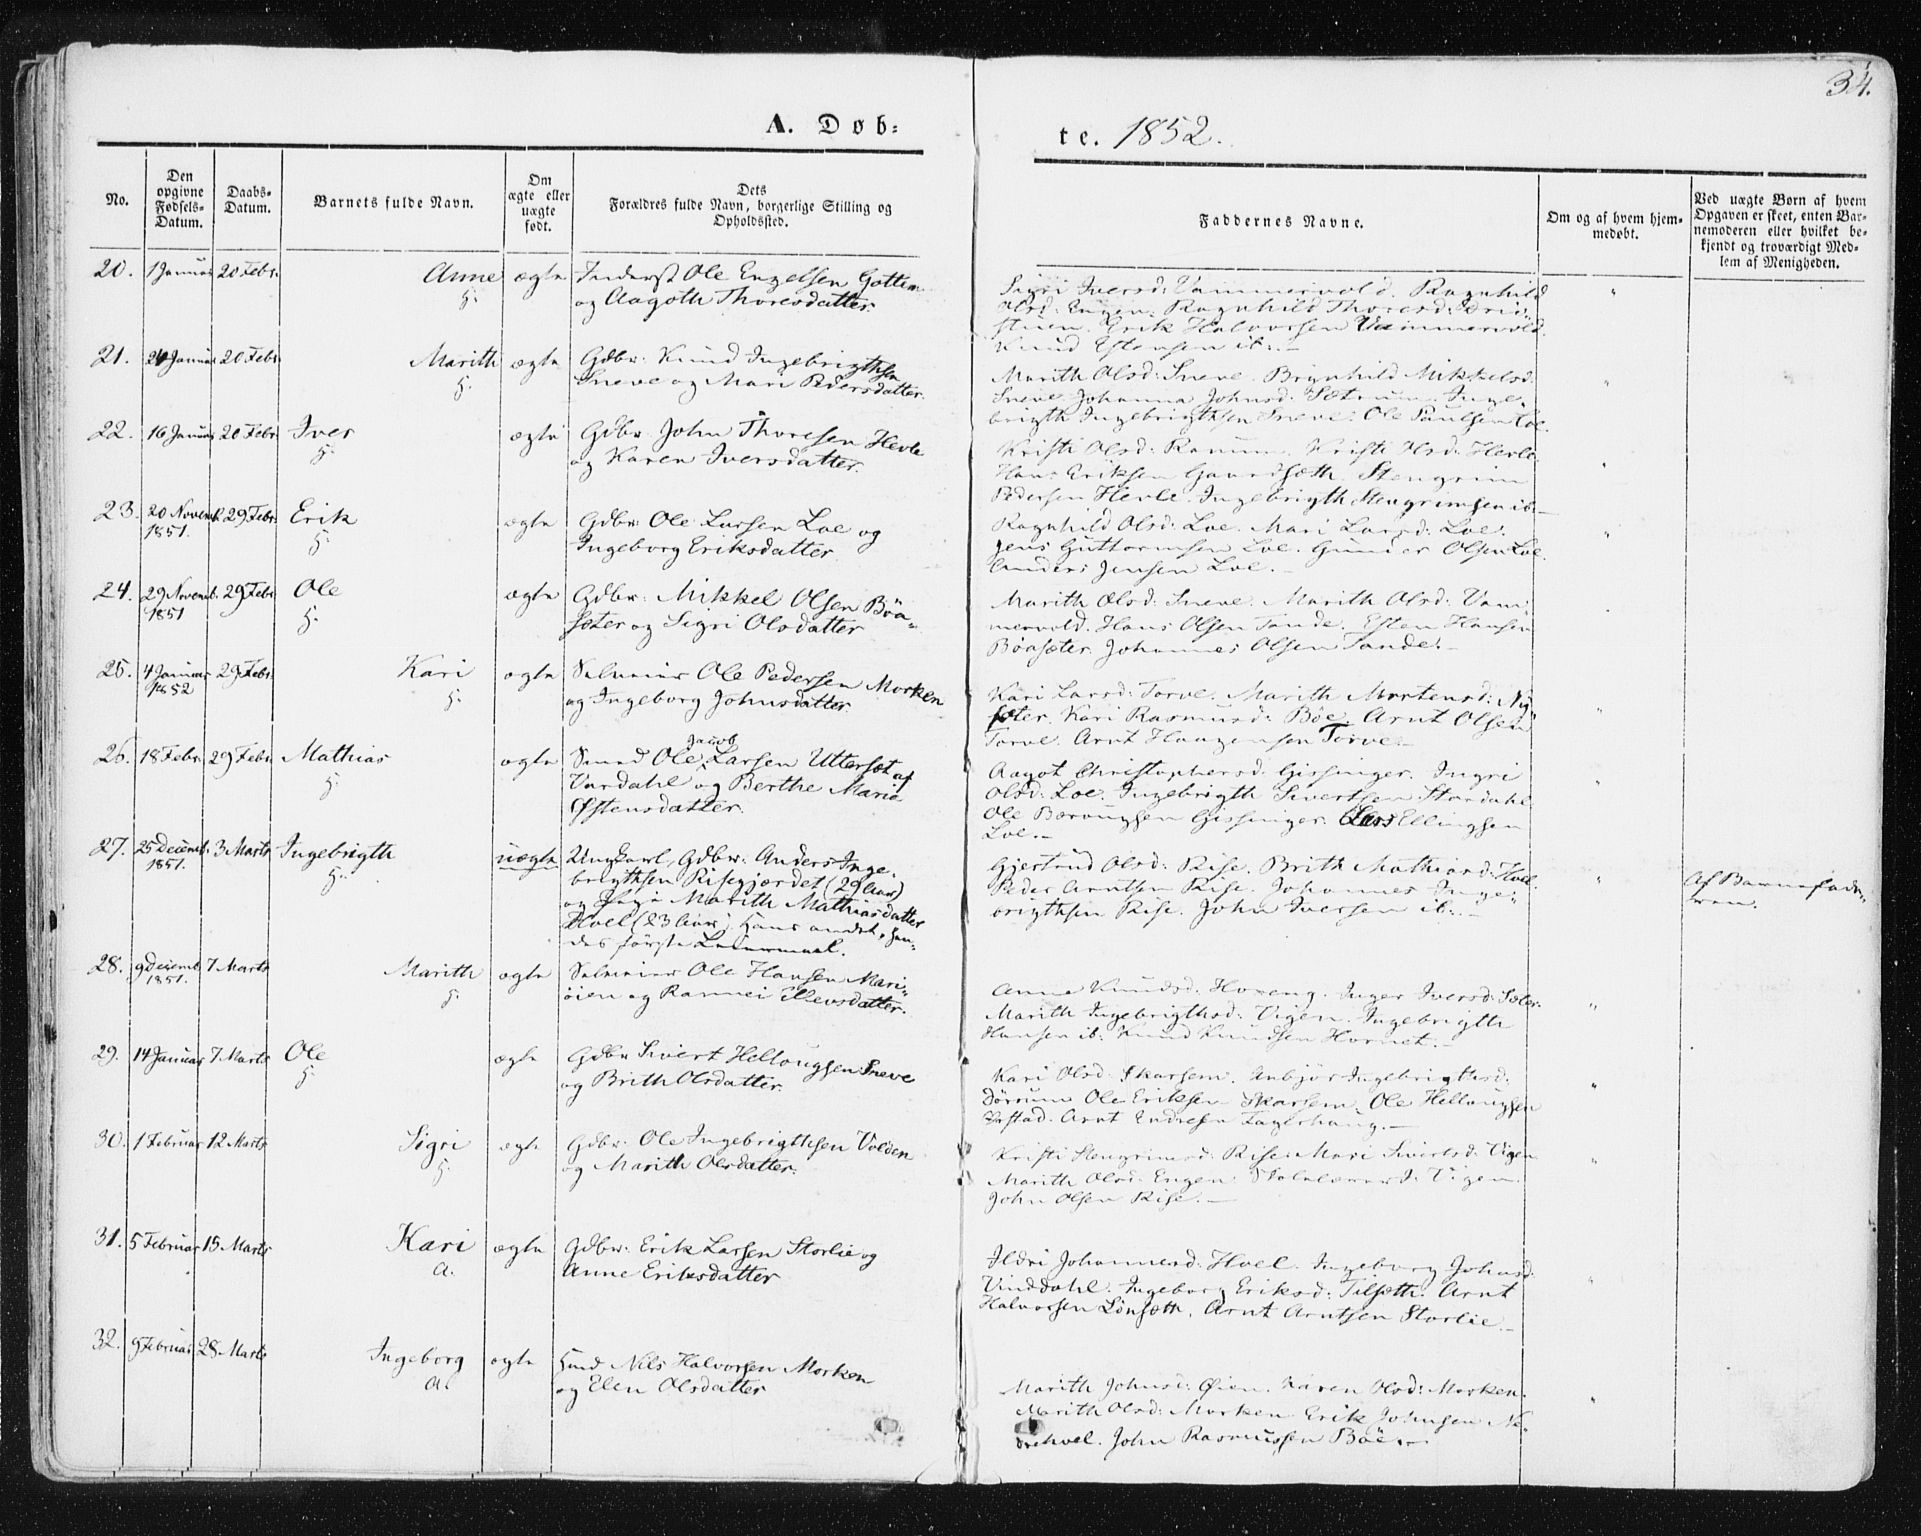 34.
A. Døb-
te. 1852.
No.
Den opgivne Fødsels-Datum.
Daabs-Datum.
Barnets fulde Navn.
Om ægte eller uægte født.
Dets Forældres fulde Navn, borgerlige Stilling og Opholdssted.
Faddernes Navne.
Om og af hvem hjem-medøbt.
Ved uægte Børn af hvem Opgaven er skeet, enten Bar-nemoderen eller hvilket be-kjendt og troværdigt Med-lem af Menigheden.
20. 1 Januar 20 Febr. Anne ægte Inderst Ole Engelsen Gotten
H. og Aagoth Thoresdatter.
Sigri Iversd: Vammervold. Ragnhild
Olsd: Engen. Ragnhild Thoresd:
Erik Halvorsen Vammervold.
Knud Estensen ib. - "
21. Januar 20 Febr. Marith ægte Gdbr: Knud Ingebrigthsen
H. Sneve og Mari Pedersdatter.
Marith Olsd: Sneve. Brynhild Mikkelsd:
Sneve. Johanna Johnsd: Inge-
brigth Ingebrigthsen Sneve. Ole Paulsen Loe. "
22. 16 Januar 20 Febr. Iver ægte Gdbr. John Thoresen Hevle
H. og Karen Iversdatter.
Kristi Olsd: Ranum. Kristi Olsd: Hevle.
Hans Eriksen Gaardsæth. Stengrim
Pedersen Hevle. Ingebrigth Stengrimsen ib. - "
23. 20 Novemb. 29 Febr. Erik ægte Gdbr: Ole Larsen Loe og
1851. H. Ingeborg Eriksdatter.
Ragnhild Olsd: Loe. Mari Larsd: Loe.
Jens Guttormsen Loe. Gunder Olsen Loe.
Anders Jensen Loe. - "
24. 29 Novemb. 29 Febr. Ole ægte Gdbr: Mikkel Olsen Böa-
1851 H. sæter og Sigri Olsdatter
Marith Olsd: Sneve. Marith Olsd: Vam-
mervold. Hans Olsen Tande. Esten Hansen
Böasæter. Johannes Olsen Tande. -
25. 4 Januar 29 Febr. Kari ægte Selveier Ole Pedersen Morken
1852 H. og Ingeborg Johnsdatter.
Kari Larsd: Torve. Marith Mortensd: Ny-
sæter. Kari Rasmusd: Böe. Arnt Olsen
Torve. Arnt Haagensen Torve. - "
26. 18 Febr. 29 Febr. Mathias ægte Ole Jacob Larsen Utterset af
H. Vardahl og Berthe Marie
Østensdatter.
Aagot Christophersd: Gissinger. Ingri
Olsd: Loe. Ingebrigth Sivertsen Stordahl
Ole Gissinger. Lars Ellingsen
Loe. - "
27. 25 Decemb. 3 Marts Ingebrigth uægte Ungkarl, Gdbr: Anders Inge-
1851. H. brigthsen Risegjærdet (29 Aar)
og Pige Marith Mathiasdatter
Hoel (23 Aar). Hans andet, hen-
des første Leiermaal.
Gjertrud Olsd: Rise. Brith Mathiasd: Hoel.
Peder Arntsen Rise. Johannes Inge-
brigthsen Rise. John Iversen ib. - "
Af Barnefade-
ren.
28. 9 Decemb. 7 Marts Marith ægte Selveier Ole Hansen Mari-
1851. H. öien og Rannei Ellevsdatter.
Anne Knudsd: Horeng. Inger Iversd: Sæter.
Marith Ingebrigthsd: Vigen. Ingebrigth
Hansen ib: Knud Knudsen Hornet. - "
29. 14 Januar 7 Marts Ole ægte Gdbr Sivert Hellougsen Sneve
H. og Brith Olsdatter.
Kari Olsd: Skarsem. Anbjör Ingebrigthsd:
Dörrum Ole Eriksen Skarsem. Ole Hellougsen
Arnt Endresen Fagerhaug. - "
30. 1 Februar 12 Marts Sigri ægte Gdbr: Ole Ingebrigthsen Volden
H. og Marith Olsdatter.
Kristi Stengrimsd: Rise. Mari Sivertsd: Vigen
Marith Olsd: Engen. Vigen.
John Olsen Rise. - "
31. 5 Februar 15 Marts Kari ægte Gdbr: Erik Larsen Storlie og
A. Anne Eriksdatter
Ildri Johannesd: Hoel. Ingeborg Johnsd:
Vinddahl. Ingeborg Eriksd: Tilsæth. Arnt
Halvorsen Lönsæth. Arnt Arntsen Storlie. - "
32. 9 Februar 28 Marts Ingeborg ægte Husmd Nils Halvorsen Morken
A. og Elen Olsdatter
Marith Johnsd: Øien. Karen Olsd: Morken.
Marith Olsd: Morken Erik Johnsen Ne-
drehoel. John Rasmussen Böe. - "